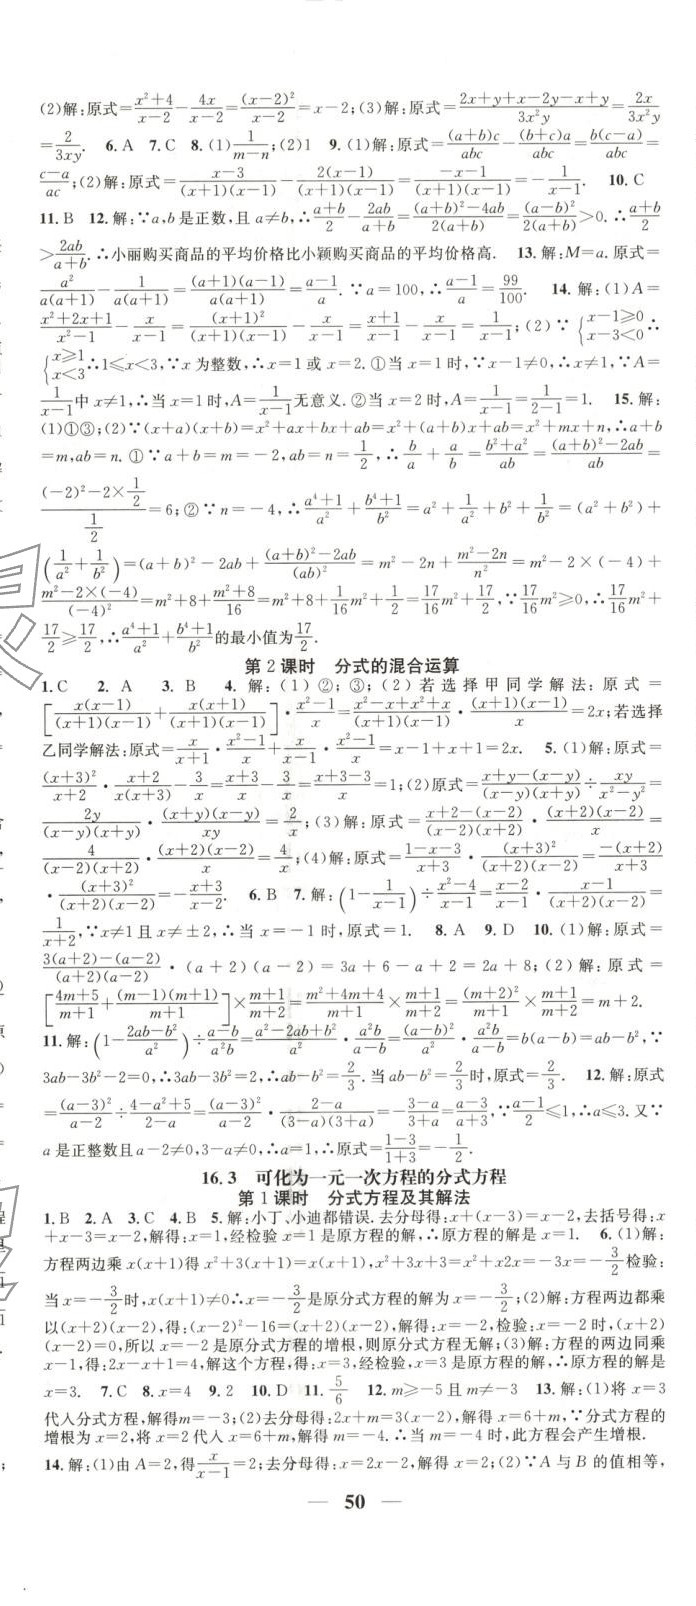 (2)解:原式=\frac{x²+4}{x-2}-\frac{4x}{x-2}=\frac{(x-2)²}{x-2}=x-2;(3)解:原式=\frac{2x+y+x-2y-x+y}{3x²y}=\frac{2x}{3x²y}
=\frac{2}{3xy}. 6.A 7.C 8.(1)\frac{1}{m-n};(2)1 9.(1)解:原式=\frac{(a+b)c}{abc}-\frac{(b+c)a}{abc}=\frac{b(c-a)}{abc}=
\frac{c-a}{ac};(2)解:原式=\frac{x-3}{(x+1)(x-1)}-\frac{2(x-1)}{(x+1)(x-1)}=\frac{-x-1}{(x+1)(x-1)}=-\frac{1}{x-1}. 10.C
11.B 12.解:∵a,b是正数,且a≠b,∴\frac{a+b}{2}-\frac{2ab}{a+b}=\frac{(a+b)²-4ab}{2(a+b)}=\frac{(a-b)²}{2(a+b)}>0.∴\frac{a+b}{2}
>\frac{2ab}{a+b}.∴小丽购买商品的平均价格比小颖购买商品的平均价格高. 13.解:M=a.原式=
\frac{a²}{a(a+1)}-\frac{1}{a(a+1)}=\frac{(a+1)(a-1)}{a(a+1)}=\frac{a-1}{a}.∵a=100,∴\frac{a-1}{a}=\frac{99}{100}. 14.解:(1)A=
\frac{x²+2x+1}{x²-1}-\frac{x}{x-1}=\frac{(x+1)²}{(x+1)(x-1)}-\frac{x}{x-1}=\frac{x+1}{x-1}-\frac{x}{x-1}=\frac{1}{x-1};(2)∵{x-1≥0 x-3<0∴
{x≥1 x<3∴1≤x<3,∵x为整数,∴x=1或x=2.①当x=1时,∵x-1≠0,∴x≠1,∵A=
\frac{1}{x-1}中x≠1,∴当x=1时,A=\frac{1}{x-1}无意义.②当x=2时,A=\frac{1}{x-1}=\frac{1}{2-1}=1. 15.解:
(1)①③;(2)∵(x+a)(x+b)=x²+ax+bx+ab=x²+(a+b)x+ab=x²+mx+n,∴a+b
=m,ab=n.①∵a+b=m=-2,ab=n=\frac{1}{2},∴\frac{b}{a}+\frac{a}{b}=\frac{b²+a²}{ab}=\frac{(a+b)²-2ab}{ab}=
\frac{(-2)²-2×\frac{1}{2}}{\frac{1}{2}}=6;②∵n=-4,∴\frac{a⁴+1}{a²}+\frac{b⁴+1}{b²}=a²+\frac{1}{a²}+b²+\frac{1}{b²}=(a²+b²)+
(\frac{1}{a²}+\frac{1}{b²})=(a+b)²-2ab+\frac{(a+b)²-2ab}{(ab)²}=m²-2n+\frac{m²-2n}{n²}=m²-2×(-4)+
\frac{m²-2×(-4)}{(-4)²}=m²+8+\frac{m²+8}{16}=m²+8+\frac{1}{16}m²+\frac{1}{2}=\frac{17}{16}m²+\frac{17}{2},∵\frac{17}{16}m²≥0,∴\frac{17}{16}m²+
\frac{17}{2}≥\frac{17}{2},∴\frac{a⁴+1}{a²}+\frac{b⁴+1}{b²}的最小值为\frac{17}{2}.
第2课时 分式的混合运算
1.C 2.A 3.B 4.解:(1)②;③;(2)若选择甲同学解法:原式=
[\frac{x(x-1)}{(x+1)(x-1)}+\frac{x(x+1)}{(x+1)(x-1)}]·\frac{x²-1}{x}=\frac{x²-x+x²+x}{(x+1)(x-1)}·\frac{(x+1)(x-1)}{x}=2x;若选择
乙同学解法:原式=\frac{x}{x+1}·\frac{x²-1}{x}+\frac{x}{x-1}·\frac{x²-1}{x}=x-1+x+1=2x. 5.(1)解:原式=
\frac{(x+3)²}{x+2}·\frac{x+2}{x(x+3)}-\frac{3}{x}=\frac{x+3}{x}-\frac{3}{x}=\frac{x+3-3}{x}=1;(2)原式=\frac{x+y-(x-y)}{(x-y)(x+y)}÷\frac{xy}{x²-y²}=
\frac{2y}{(x-y)(x+y)}·\frac{(x+y)(x-y)}{xy}=\frac{2}{x};(3)解:原式=\frac{x+2-(x-2)}{(x-2)(x+2)}·\frac{(x+2)(x-2)}{x}=
\frac{4}{(x-2)(x+2)}·\frac{(x+2)(x-2)}{x}=\frac{4}{x};(4)解:原式=\frac{1-x-3}{x+3}·\frac{(x+3)²}{(x+2)(x-2)}=\frac{-(x+2)}{x+3}
·\frac{(x+3)²}{(x+2)(x-2)}=-\frac{x+3}{x-2}. 6.B 7.解:(1-\frac{1}{x-1})÷\frac{x²-4}{x-1}=\frac{x-2}{x-1}·\frac{x-1}{(x+2)(x-2)}=
\frac{1}{x+2},∵x≠1且x≠±2,∴当x=-1时,原式=1. 8.A 9.D 10.(1)解:原式=
\frac{3(a+2)-(a-2)}{(a+2)(a-2)}·(a+2)(a-2)=3a+6-a+2=2a+8;(2)解:原式=
[\frac{4m+5}{m+1}+\frac{(m-1)(m+1)}{m+1}]×\frac{m+1}{m+2}=\frac{m²+4m+4}{m+1}×\frac{m+1}{m+2}=\frac{(m+2)²}{m+1}×\frac{m+1}{m+2}=m+2.
11.解:(1-\frac{2ab-b²}{a²})÷\frac{a-b}{a²b}=\frac{a²-2ab+b²}{a²}·\frac{a²b}{a-b}=\frac{(a-b)²}{a²}·\frac{a²b}{a-b}=b(a-b)=ab-b²,∵
3ab-3b²-2=0,∴3ab-3b²=2,∴ab-b²=\frac{2}{3}.当ab-b²=\frac{2}{3}时,原式=\frac{2}{3}. 12.解:原式
=\frac{(a-3)²}{a-2}÷\frac{4-a²+5}{2-a}=\frac{(a-3)²}{a-2}·\frac{2-a}{(3-a)(3+a)}=-\frac{3-a}{3+a}=\frac{a-3}{a+3},∵\frac{a-1}{2}≤1,∴a≤3.又∵
a是正整数且a-2≠0,3-a≠0,∴a=1,∴原式=\frac{1-3}{1+3}=-\frac{1}{2}.
16.3 可化为一元一次方程的分式方程
第1课时 分式方程及其解法
1.B 2.A 3.C 4.B 5.解:小丁、小迪都错误.去分母得:x+(x-3)=x-2,去括号得:x
+x-3=x-2,解得:x=1,经检验x=1是原方程的解,∴原方程的解是x=1. 6.(1)解:
方程两边乘x(x+1)得x²+3(x+1)=x(x+1),x²+3x+3=x²+x2x=-3x=-\frac{3}{2}检验:
当x=-\frac{3}{2}时,x(x+1)≠0∴x=-\frac{3}{2}是原分式方程的解为x=-\frac{3}{2};(2)解:方程两边都乘
以(x+2)(x-2),得:(x-2)²-16=(x+2)(x-2),解得:x=-2,检验:x=-2时,(x+2)
(x-2)=0,所以x=-2是原分式方程的增根,则原分式方程无解;(3)解:方程的两边同乘
x-1,得:2x-x+1=4,解这个方程,得:x=3,经检验,x=3是原方程的解,∴原方程的解是
x=3. 7.C 8.x=4 9.2 10.D 11.\frac{5}{6} 12.m≥-5且m≠-3 13.解:(1)将x=3
代入分式方程,解得m=-3;(2)去分母得:2x+m=3(x-2),解得x=6+m,∵分式方程的
增根为x=2,将x=2代入x=6+m,解得m=-4.∴当m=-4时,此方程会产生增根.
14.解:(1)由A=2,得\frac{x}{x-1}=2;去分母得:x=2x-2,解得x=2;(2)∵A与B的值相等,
— 50 —